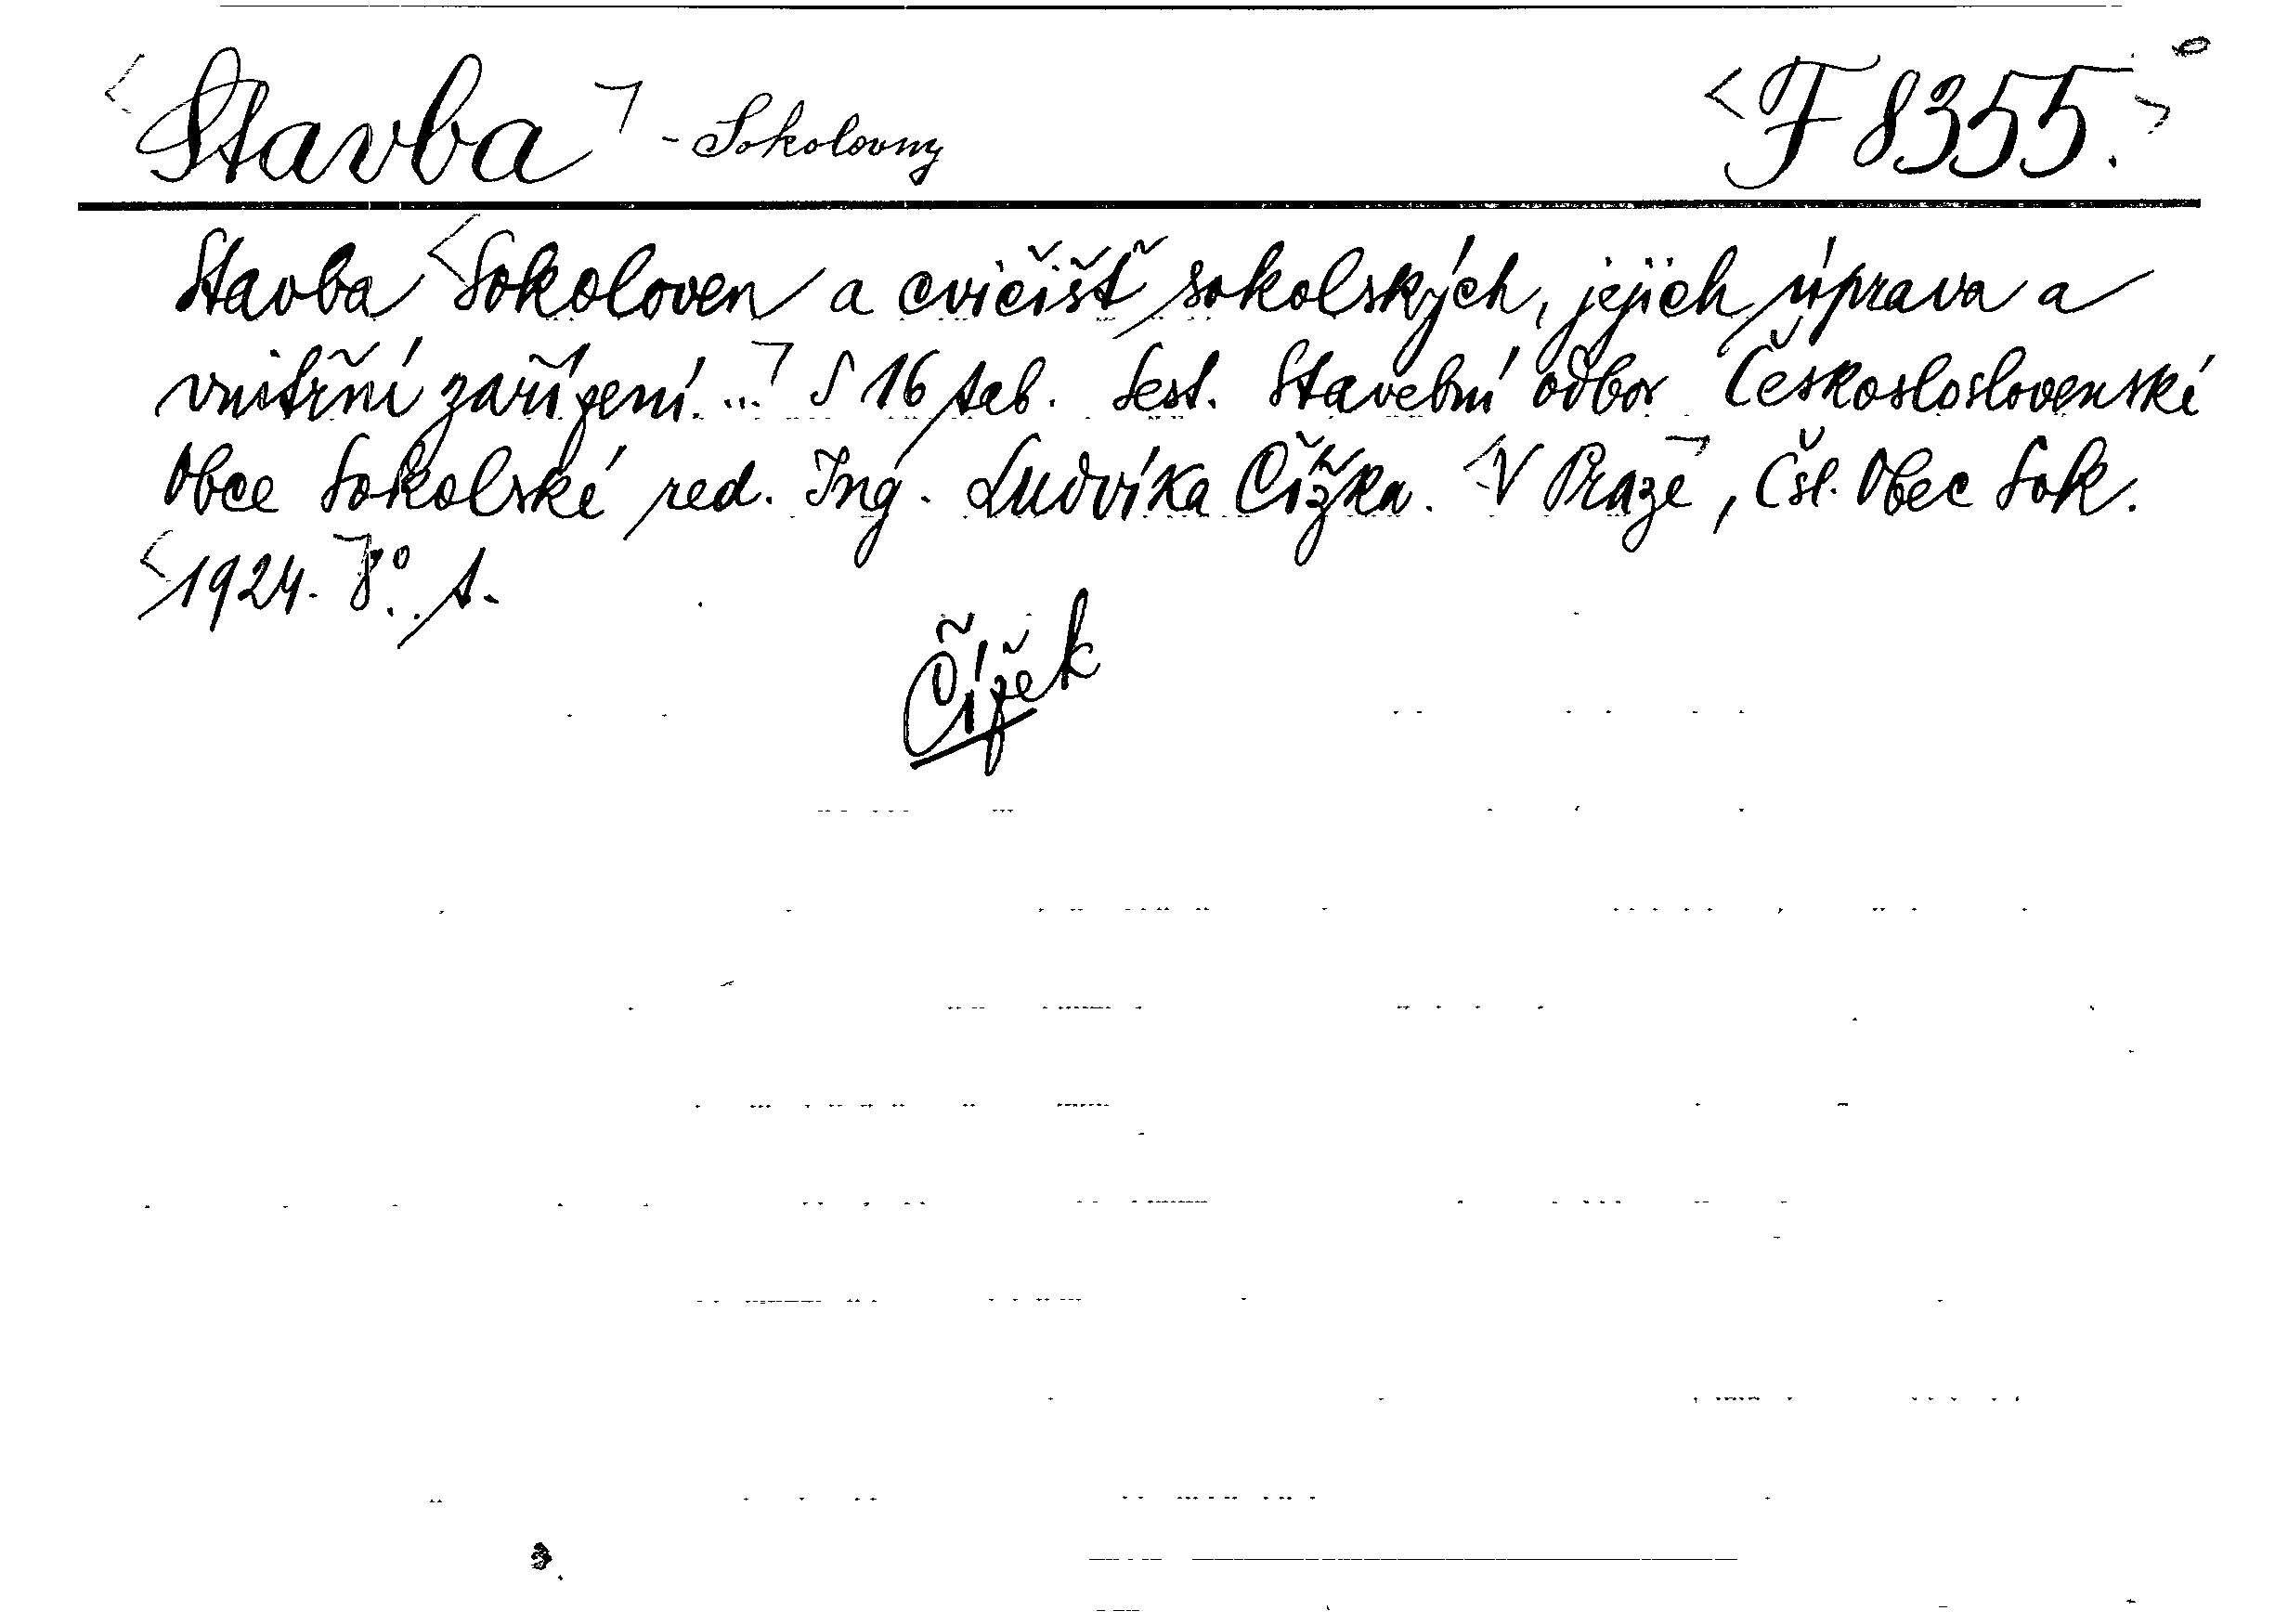 <Stavba> - Sokolovny <F 8355.>
Stavba <Sokoloven a cvičišť sokolských, jejich úprava a
vnitřní zařízení...> S 16 tab. Sest. Stavební odbor Českosloslovenské
Obce Sokolské red. Ing. Ludvíka Čížka. <V Praze>, Čsl. Obec Sok.
<1924.> 8°. A.
Čížek